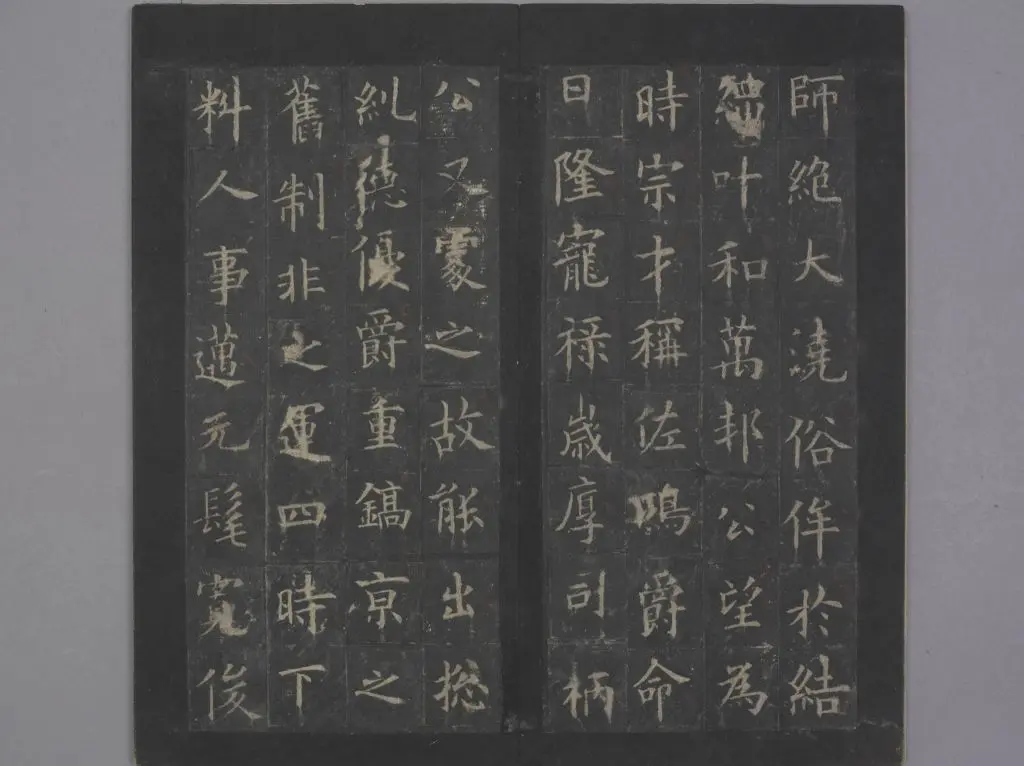 師絕大澆俗侔於結
繩叶和萬邦公望為
時宗才稱佐鳴爵命
日隆寵祿歲厚司柄
公又蒙之故能出揔
糺德優爵重鎬京之
舊制非上運四時下
料人事邁元髦寬俊